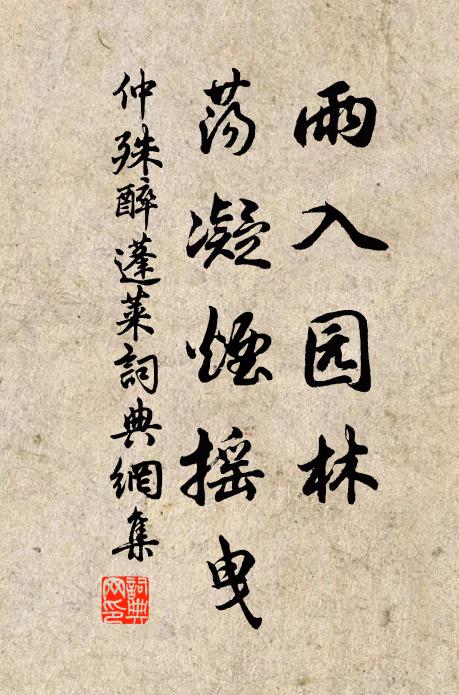 雨入园林
荡凝煙摇曳
仲殊醉蓬莱詞典網集
詞典